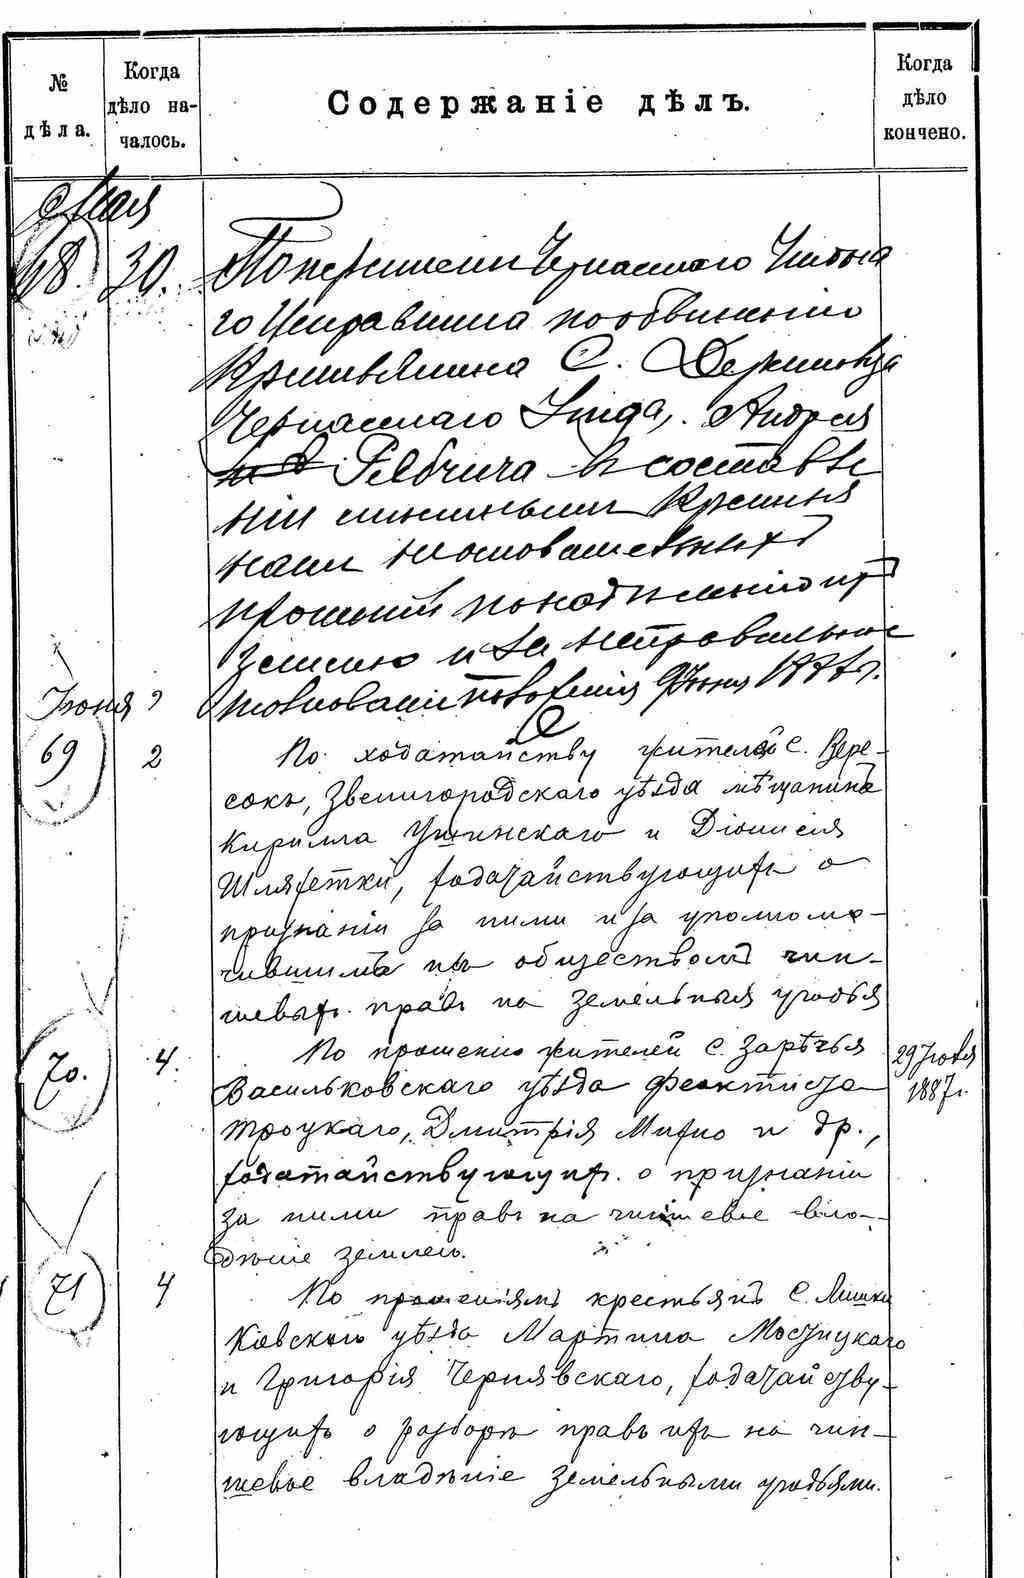 № дѣла.
Когда дѣло началось.
Содержаніе дѣлъ.
Когда дѣло кончено.
Мая
68. 30. По переписки Черкасскаго Уѣздна
го Исправника по обвиненію
Крестьянина С.
Черкасскаго Уѣзда, Андрея
Рябчича въ составле
ніи крестья
нами неосновательныхъ
прошеній по надѣленію ихъ
землею и за неправильное
толкованіе положенія 9 Іюня 1886 г.
Іюня
69 2 По ходатайству жителей с. Вере-
сокъ, Звенигородскаго уѣзда мѣщанина
Кирилла Ушинскаго и Діонисія
Шляхетки, ходатайствующихъ о
признаніи за ними и за уполномо-
чившимъ ихъ обществомъ чин-
шевыхъ правъ на земельныя угодья
70. 4. По прошенію жителей с. Зарѣчья 29 Іюня
Васильковскаго уѣзда Феоктиста 1887 г.
Троцкаго, Дмитрія Михно и др.,
ходатайствующихъ о признаніи
за ними правъ на чиншевое вла-
дѣніе землею.
71 4 По прошеніямъ крестьянъ с. Мишки
Кіевскаго уѣзда Мартина Мостицкаго
и Григорія Чернявскаго, ходатайству-
ющихъ о разборѣ правъ ихъ на чин-
шевое владѣніе земельными угодьями.